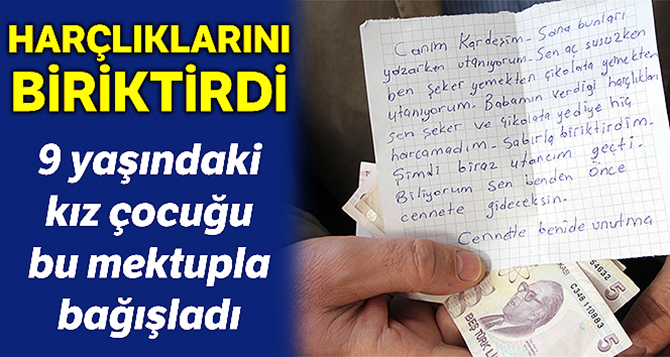 HARÇLIKLARINI
BİRİKTİRDİ
9 yaşındaki
kız çocuğu
bu mektupla
bağışladı
Canım Kardeşim. Sana bunları
yazarken utanıyorum. Sen aç susuzken
ben şeker yemekten çikolata yemekten
utanıyorum. Babamın verdiği harçlıkları
sen şeker ve çikolata yediye hiç
harcamadım. Sabırla biriktirdim.
Şimdi biraz utancım geçti.
Biliyorum sen benden önce
cennete gideceksin.
Cennette benide unutma
5
BEŞ TÜRK Lİ
C348 110883
54632
5